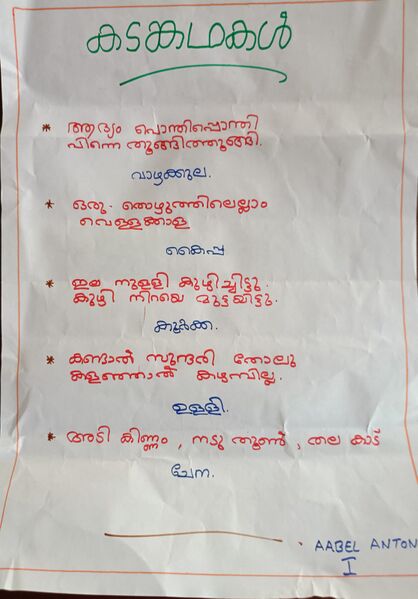 കടങ്കഥകൾ
* ആദ്യം പൊന്തിപ്പൊന്തി
പിന്നെ തൂങ്ങിത്തൂങ്ങി.
വാഴക്കുല.
* ഒരു തൊഴുത്തിലെല്ലാം
വെള്ളക്കാള
കൈപ്പ
* ഇല നുള്ളി കുഴിച്ചിട്ടു.
കുഴി നിറയെ മുട്ടയിട്ടു.
കൂർക്ക.
* കണ്ടാൽ സുന്ദരി തോലു
കളഞ്ഞാൽ കഴമ്പില്ല.
ഉള്ളി.
* അടി കിണ്ണം, നടു തൂൺ, തല കാട്
ചേന.
AABEL ANTON
I